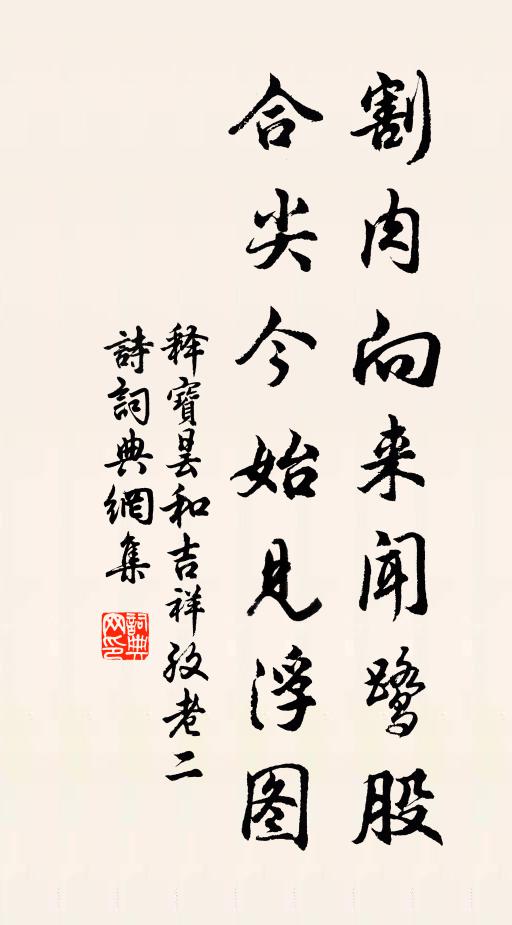 割肉向来闻鹭股
合尖今始见浮图
释寶昙和吉祥政老二
詩詞典網集
詞典网印